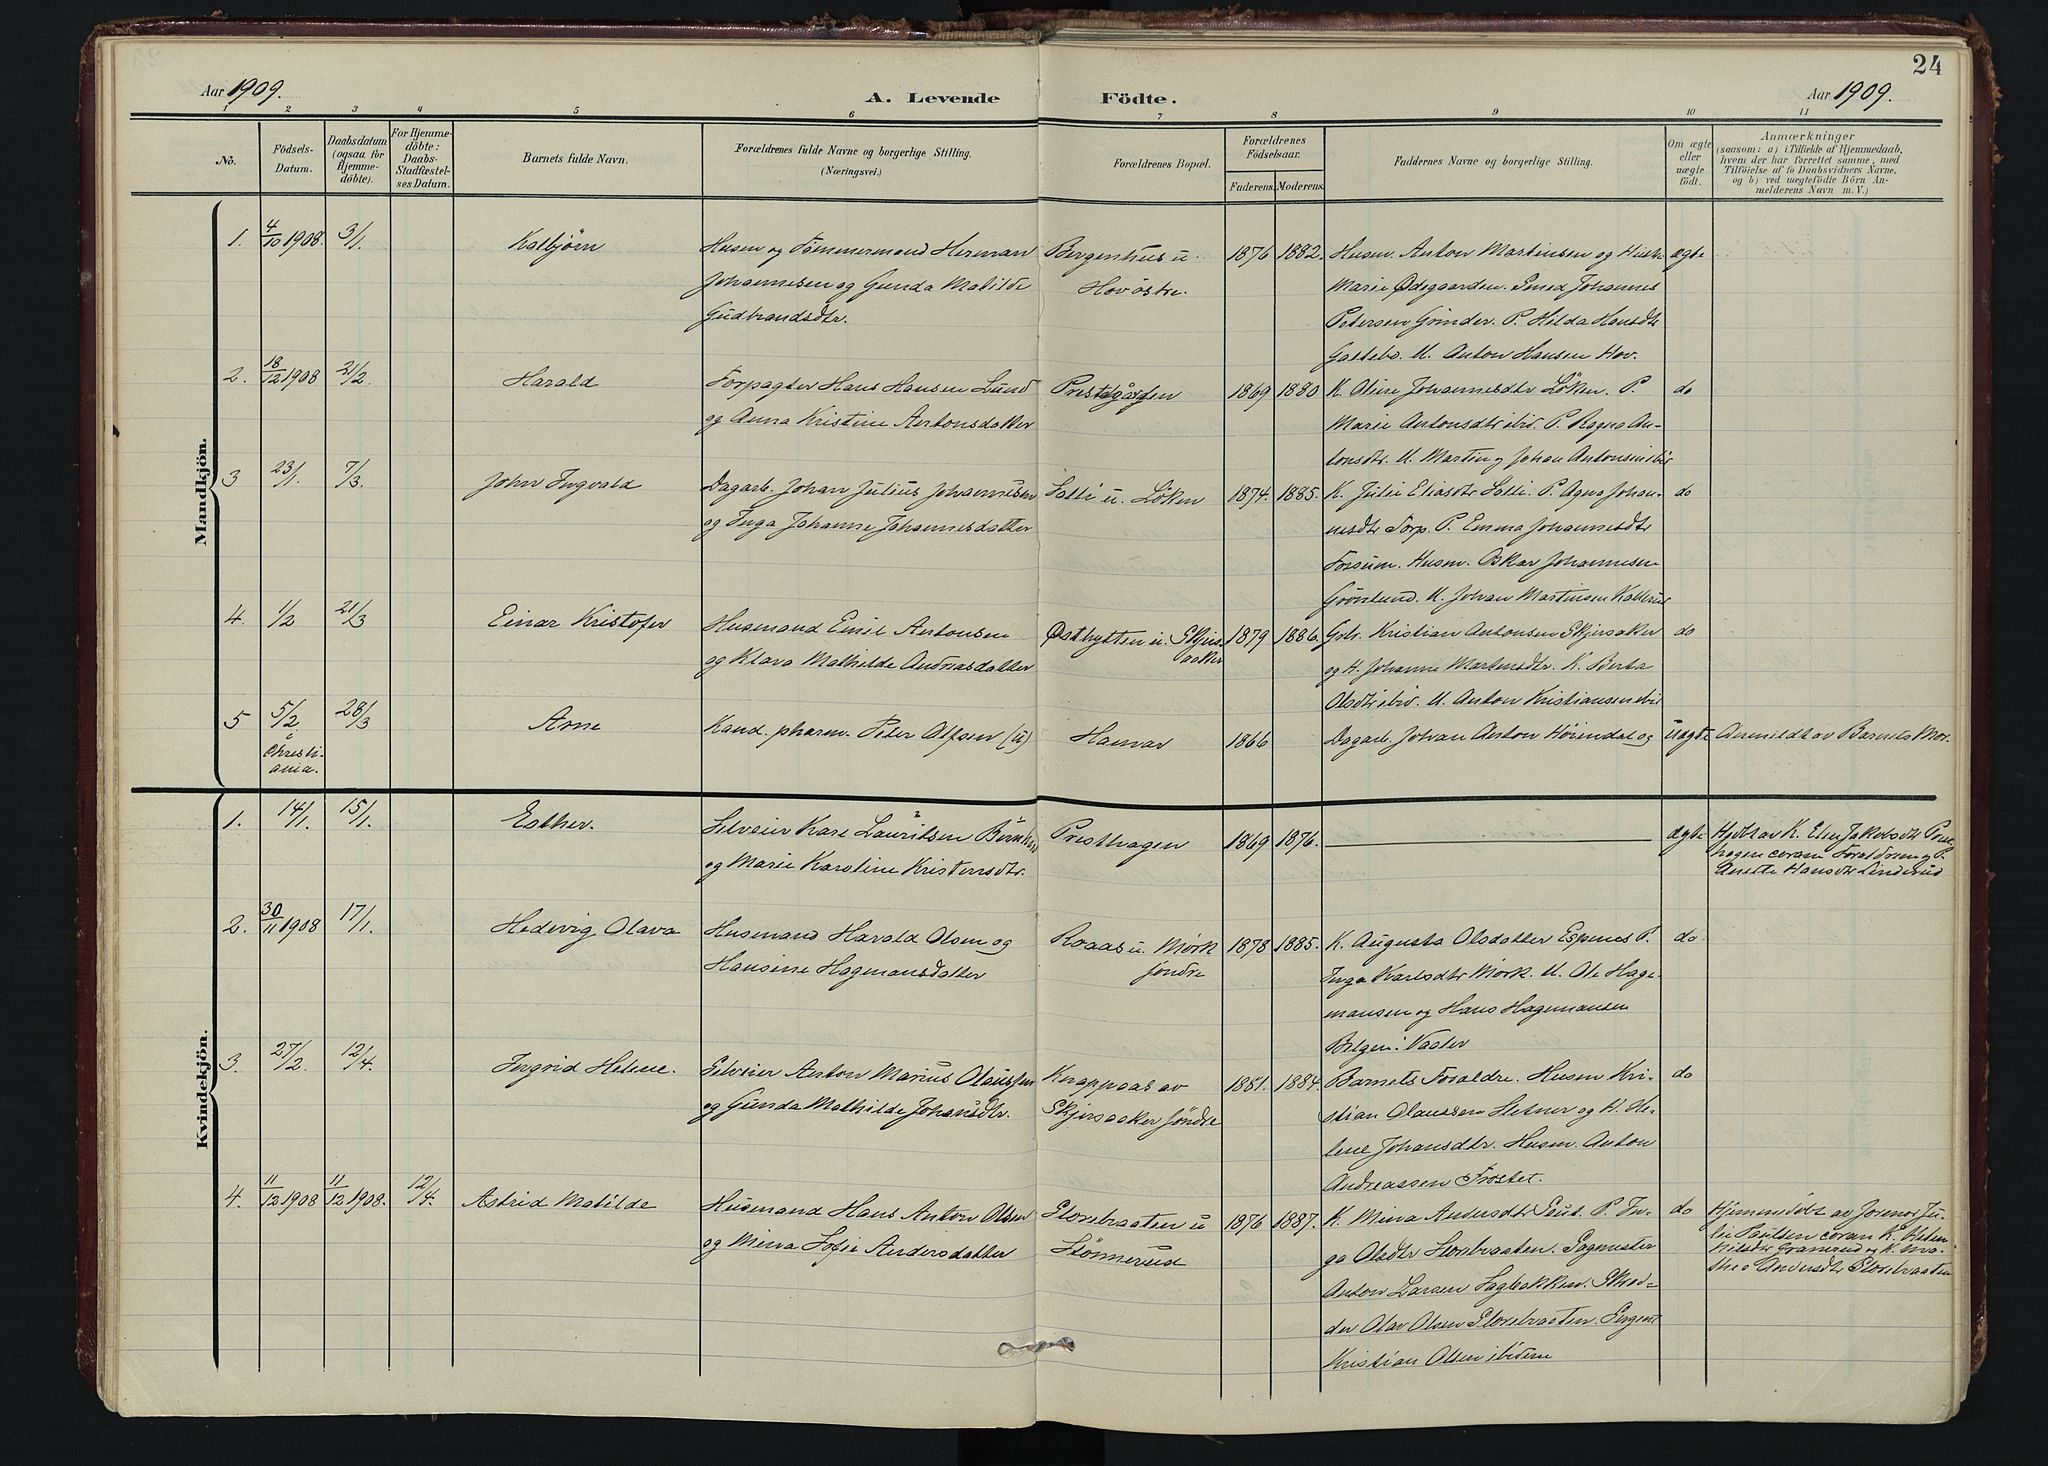 24
Aar 1909.
A. Levende Födte.
Aar 1909.
1 2 3 4 5 6 7 8 9 10 11
No.
Födsels-Datum.
Daabsdatum (ogsaa for Hjemmedöbte).
For Hjemmedöbte: Daabs-Stadfæstelses Datum.
Barnets fulde Navn.
Forældrenes fulde Navne og borgerlige Stilling.
(Næringsvei.)
Forældrenes Bopæl.
Forældrenes Födselsaar.
Faderens. Moderens.
Faddernes Navne og borgerlige Stilling.
Om ægte eller uægte födt.
Anmærkninger
(saasom: a) i Tilfælde af Hjemmedaab,
hvem der har forrettet samme, med
Tilföielse af to Daabsvidners Navne,
og b) ved uægtefödte Börn An-
melderens Navn m. V.)
Mandkjön.
1. 4/10 1908. 3/1. Kolbjörn
Husm og Tømmermand Herman
Johannesen og Gunda Matilde
Gudbrandsdtr.
Bergenhus u.
Hov östre.
1876 1882.
Husm. Anton Martinsen og Hustr
Marie Ødegaarden. Smed Johannes
Petersen Grinder. P. Hilda Hansdtr
U. Anton Hansen Hov.
ægte
2. 18/12 1908 21/2. Harald
Forpagter Hans Hansen Lund
og Anna Kristine Antonsdatter
Prestegården
1869 1880
K. Oline Johannesdtr Löken. P.
Marie Antonsdtr ibid. P. Ragna An-
tonsdtr. U. Martin og Johan Antonsen ibid
do
3 23/1. 7/3. John Ingvald
Dagarb. Johan Julius Johannesen
og Inga Johanne Johannesdatter
Salli u. Löken
1874. 1885.
K. Julie Eliasdtr Salli. P. Agna Johan-
nesdtr Torp. P. Emma Johannesdtr
Forsum. Husm. Oskar Johannesen
Grönlund. U. Johan Martinsen Kallerud
do
4. 1/2 21/3 Einar Kristofer
Husmand Emil Antonsen
og Klara Mathilde Andreasdatter
Østhytten u. Skjers-
aaker
1879 1886.
Grb. Kristian Antonsen Skjersaker
og H. Johanne Martinsdtr. K. Berta
Olsdtr ibid. U. Anton Kristiansen ibid
do
5 5/2 28/3 Arne
i Christi-
ania.
Kand. pharm. Peter Olfsen (u)
Hamar
1866
Dagarb. Johan Anton Höiendal og
uægte
Anmeldt av Barnets Mor.
Kvindekjön.
1. 14/1. 15/1. Esther.
Selveier Karl Lauritsen
og Marie Karoline Kristensdtr.
Presthagen
1869 1876.
ægte
Hjdbt av K. Elen Jakobsdtr Prest-
hagen coram Forældrene og P.
Anette Hansdtr Linderud
2. 30/11 1908 17/1. Hedevig Olava
Husmand Harald Olsen og
Hansine Hagemansdatter
Roaas u. Mörk
söndre
1878 1885.
K. Augusta Olsdatter Espenes P.
Inga Karlsdtr Mörk. U. Ole Hage-
mansen og Hans Hagemansen
Belgen i Vaaler
do
3. 27/2. 12/4. Ingrid Helene.
Selveier Anton Marius Olaussen
og Gunda Mathilde Johansdtr.
Knappaas av
Skjersaaker söndre
1881. 1884.
Barnets Foraldre. Husm Kri-
stian Olaussen Sletner og H. He-
lene Johansdtr. Husm. Anton
Andreassen Frostet.
do
4. 11/12 1908 11/12 1908. 12/4. Astrid Matilde
Husmand Hans Anton Olsen
og Mina Sofie Andersdatter
Slorebraaten u
Stömnerud
1876 1887.
K. Mina Andersdtr P. In-
ga Olsdtr Slorebraaten. Sagmester
Anton Larsen Sagbakken. Skræd-
der Olav Olsen Slorebraaten. Sergeant
Kristian Olsen ibidem
do
Hjemmedöbt av Jormor Ju-
lie Paulsen coram K. Helene
Nilsdtr Gramrud og K.
Andersdtr Slorebraaten